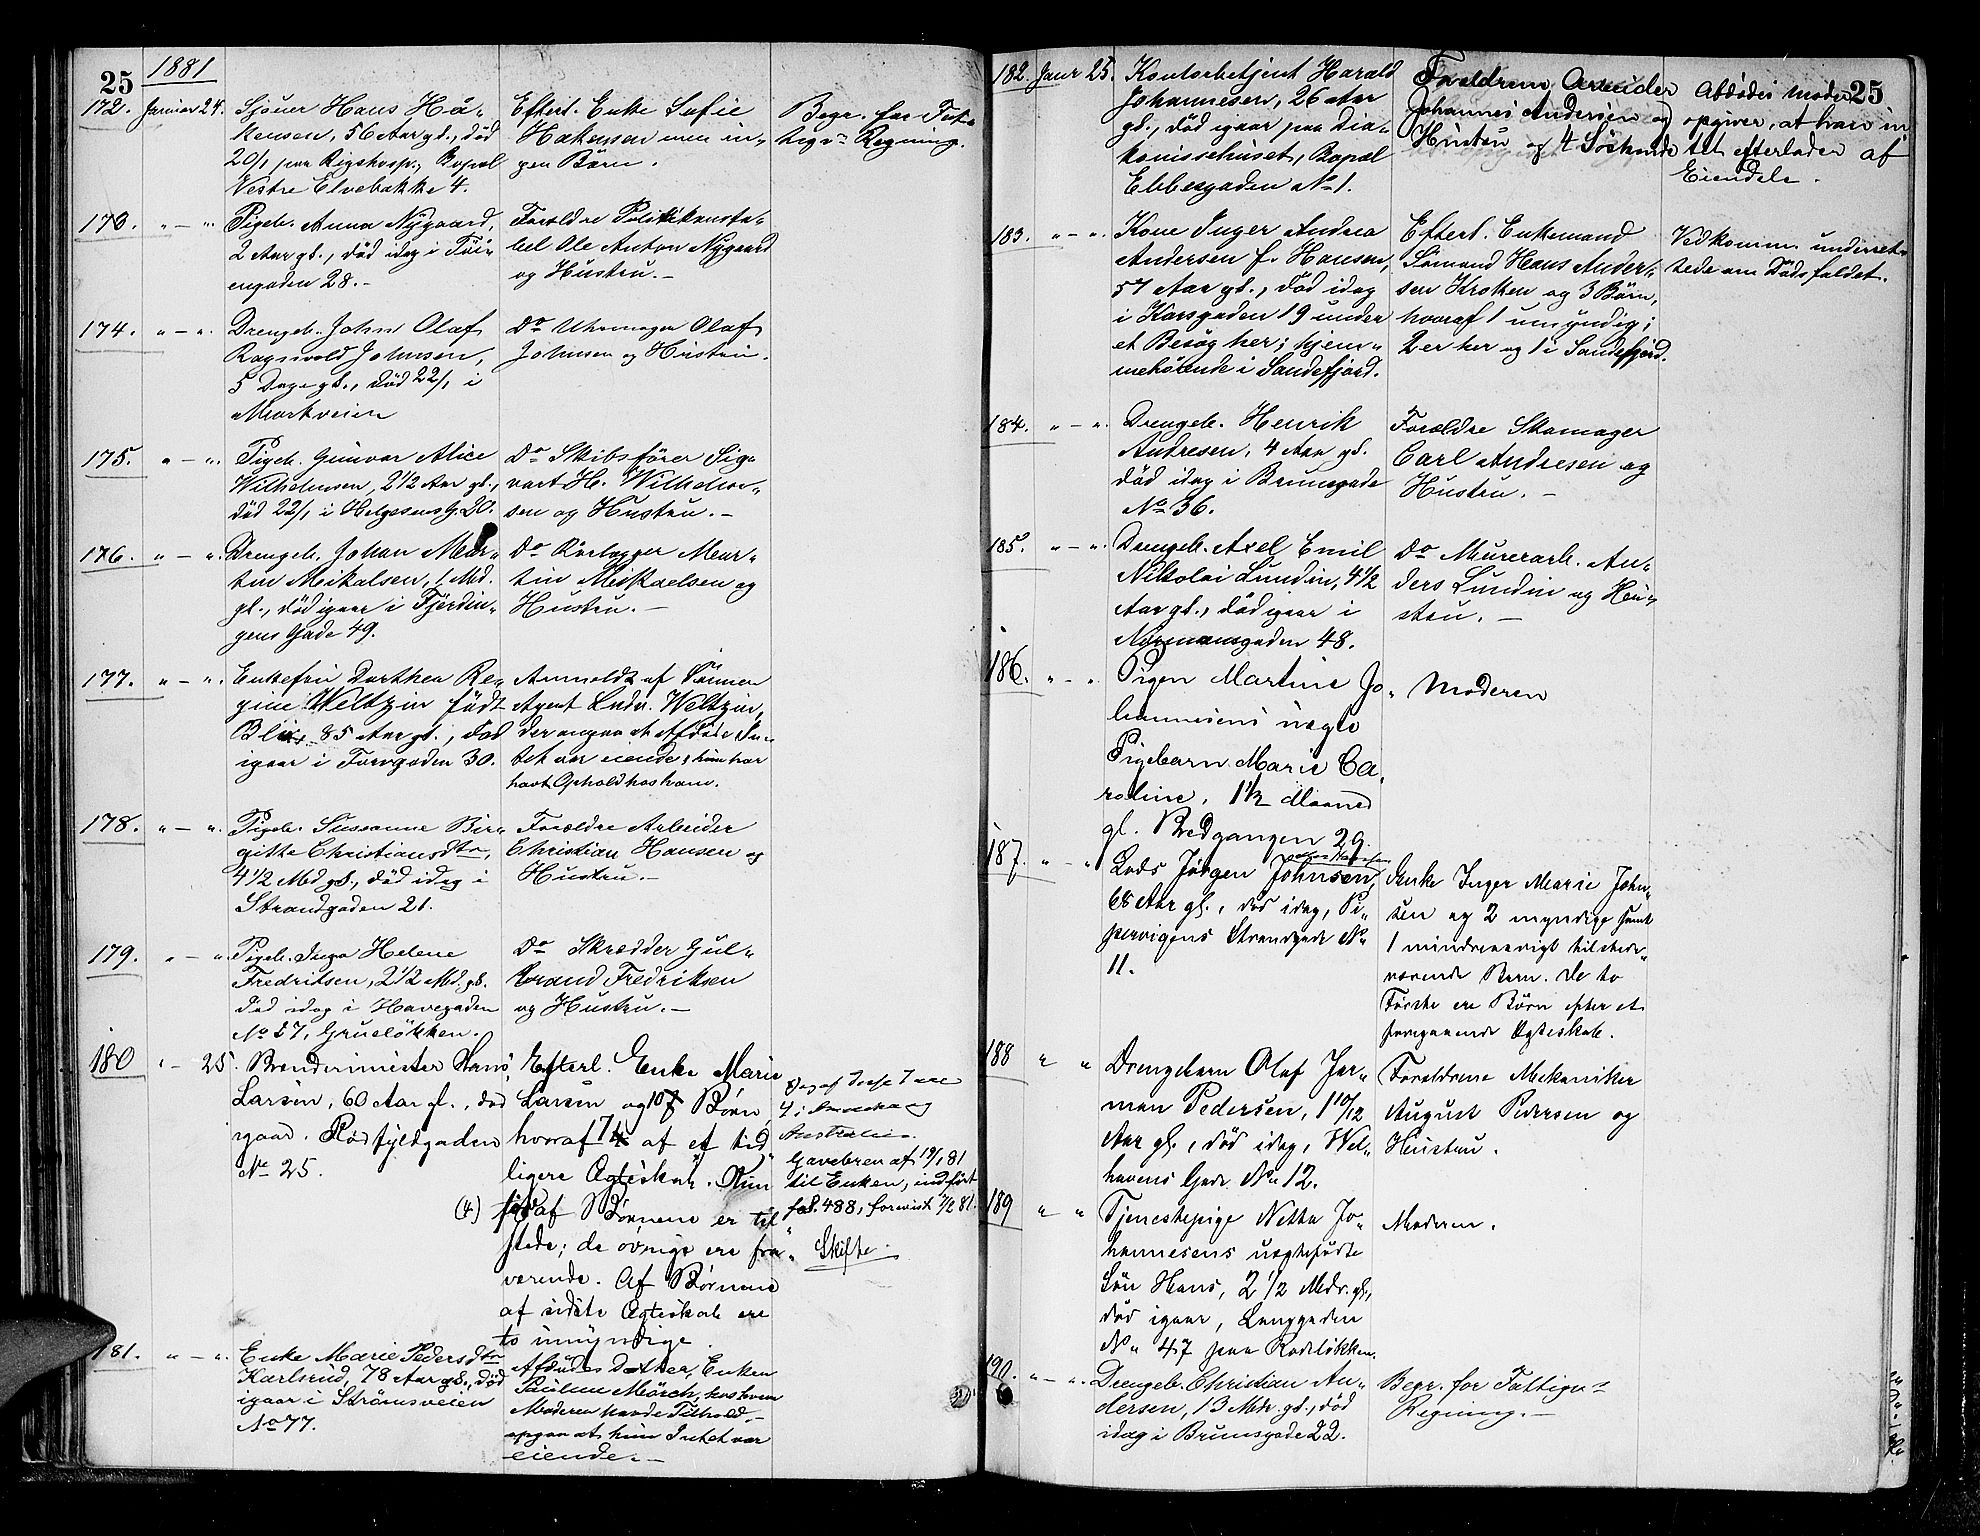 25
1881
172. Januar 24. Sjouer Hans Hå-
kensen, 56 Aar gl., död
20/1 paa Rigshosp.; Bopæl
Vestre Elvebakke 4.
Efterl. Enke Sofie
Hakensen men in-
gen Börn.
Begr. for Fat-
tigv. Regning.
173. " — " Pigeb. Anna Nygaard,
2 Aar gl., död idag i Töi-
engaden 28. -
Forældre Politikonsta-
bel Ole Anton Nygaard
og Hustru. -
174. " — " Drengeb. John Olaf
Ragnvald Johnsen,
5 Dage gl., död 22/1 i
Markveien
Do Uhrmager Olaf
Johnsen og Hustru.
175. " — " Pigeb. Gunvor Alice
Wilhelmsen, 2 1/2 Aar gl.,
död 22/1 i Helgesens G. 20.
Do Skibsförer Sig-
vart H. Wilhelm-
sen og Hustru. -
176. " — " Drengeb. Johan Mar-
tin Meikalsen, 1 Md.
gl., död igaar i Fjerdin-
gens Gade 49.
Do Rörlægger Mar-
tin Meikaelsen og
Hustru. -
177. " — " Enkefru Dorthea Re-
gine Weltzin födt
Blix, 85 Aar gl., död
igaar i Torvgaden 30.
Anmeldt af Sönnen
Agent Ludv. Weltzin,
der angav at Afdöde In-
tet var eiende; hun har
havt Ophold hos ham.
178. " — " Pigeb. Sussanne Bir-
gitte Christiansdtr,
4 1/2 Md gl., död idag i
Strandgaden 21.
Forældre Arbeider
Christian Hansen og
Hustru. -
179. " — " Pigeb. Inga Helene
Fredriksen, 2 1/2 Md. gl.
död idag i Havegaden
No 27, Grüelökken.
Do Skrædder Gul-
brand Fredriksen
og Hustru. -
180 " - 25. Brændemester Hans
Larsen, 60 Aar gl., död
igaar. Rödfyldgaden
No 25.
Efterl. Enke Marie
Larsen og 10 Börn,
hvoraf 7 af et tid-
ligere Ægteskab. Kun
(4) af Börnene er til
stede; de övrige ere fra-
værende. Af Börnene
af sidste Ægteskab ere
to umyndige.
og af disse
4 i Amerika og
Australien.
Gavebrev af 19/1 81
til Enken, indfört
fol. 488, forevist 7/2 81.
Skifte.
181. " — " Enke Marie Pedersdtr
Karlsrud, 78 Aar gl., död
igaar i Strömsveien
No 77.
Afdödes Datter, Enken
Pauline Mörch, hos hvem
Moderen havde Tilhold, -
opgav at hun Intet var
eiende. -
25
182. Janr 25. Kontorbetjent Harald
Johannesen, 26 Aar
gl., död igaar paa Dia-
konissehuset, Bopæl
Ebbesgaden No 1.
Forældrene, Arbeider
Johannes Andersen og
Hustru og 4 Söskende
Afdödes Moder
opgiver, at han in-
tet efterlader af
Eiendele.
183. " — " Kone Inger Andrea
Andersen f. Hansen,
57 Aar gl., död idag
i Korsgaden 19 under
et Besög her; hjem-
mehörende i Sandefjord.
Efterl. Enkemand
Sömand Hans Ander-
sen Krokken og 3 Börn,
hvoraf 1 umyndig;
2 er her og 1 i Sandefjord.
Vedkomm. underret-
tede om Dödsfaldet.
184. " — " Drengeb. Henrik
Andresen, 4 Aar gl.
död idag i Brunsgade
No 36.
Forældre Skomager
Carl Andresen og
Hustru. -
185. " — " Drengeb. Axel Emil
Nikolai Lundin, 4 1/2
Aar gl., död igaar i
Normansgaden 48.
Do Murerarb. An-
ders Lundin og Hu-
stru. -
186. " — " Pigen Martine Jo-
hannesens uægte
Pigebarn Marie Ca-
roline, 1 1/2 Maaned
gl. Bredgangen 29.
Moderen
187. " — " Lods Jörgen Johnsen,
68 Aar gl., död idag, Pi-
pervigens Strandgade No
11.
Enke Inger Marie John-
sen og 2 myndige samt
1 mindreaarigt tilstede-
værende Barn. De to
Förste ere Börn efter et
foregaaende Ægteskab.
188 " " Drengebarn Olaf Jar-
man Pedersen, 1 10/12
Aar gl., död idag, Wel-
havens Gade No 12.
Forældrene Mekaniker
August Pedersen og
Hustru.
189 " " Tjenestepige Netta Jo-
hannesens uægtefödte
Sön Hans, 2 1/2 Mdr. gl.,
död igaar, Langgaden
No 47 paa Rodelökken.
Moderen.
190. " — " Drengeb. Christian An-
dersen, 13 Mdr. gl., död
idag i Brunsgade 22.
Begr. for Fattigv.
Regning. -